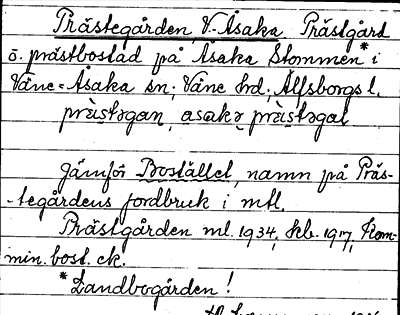 Prästegården, V. Åsaka Prästgård
o. prästbostad på Åsaka Stommen* i
Väne-Åsaka sn; Väne hd; Älfsborgs l.
prästəgan, asakə prästəgal
Jämför Bostället, namn på Präs-
-tegårdens jordbruk i mtl.
Prästgården ml. 1934, kb. 1917, Kom-
min. bost. ek.
*Landbogården!